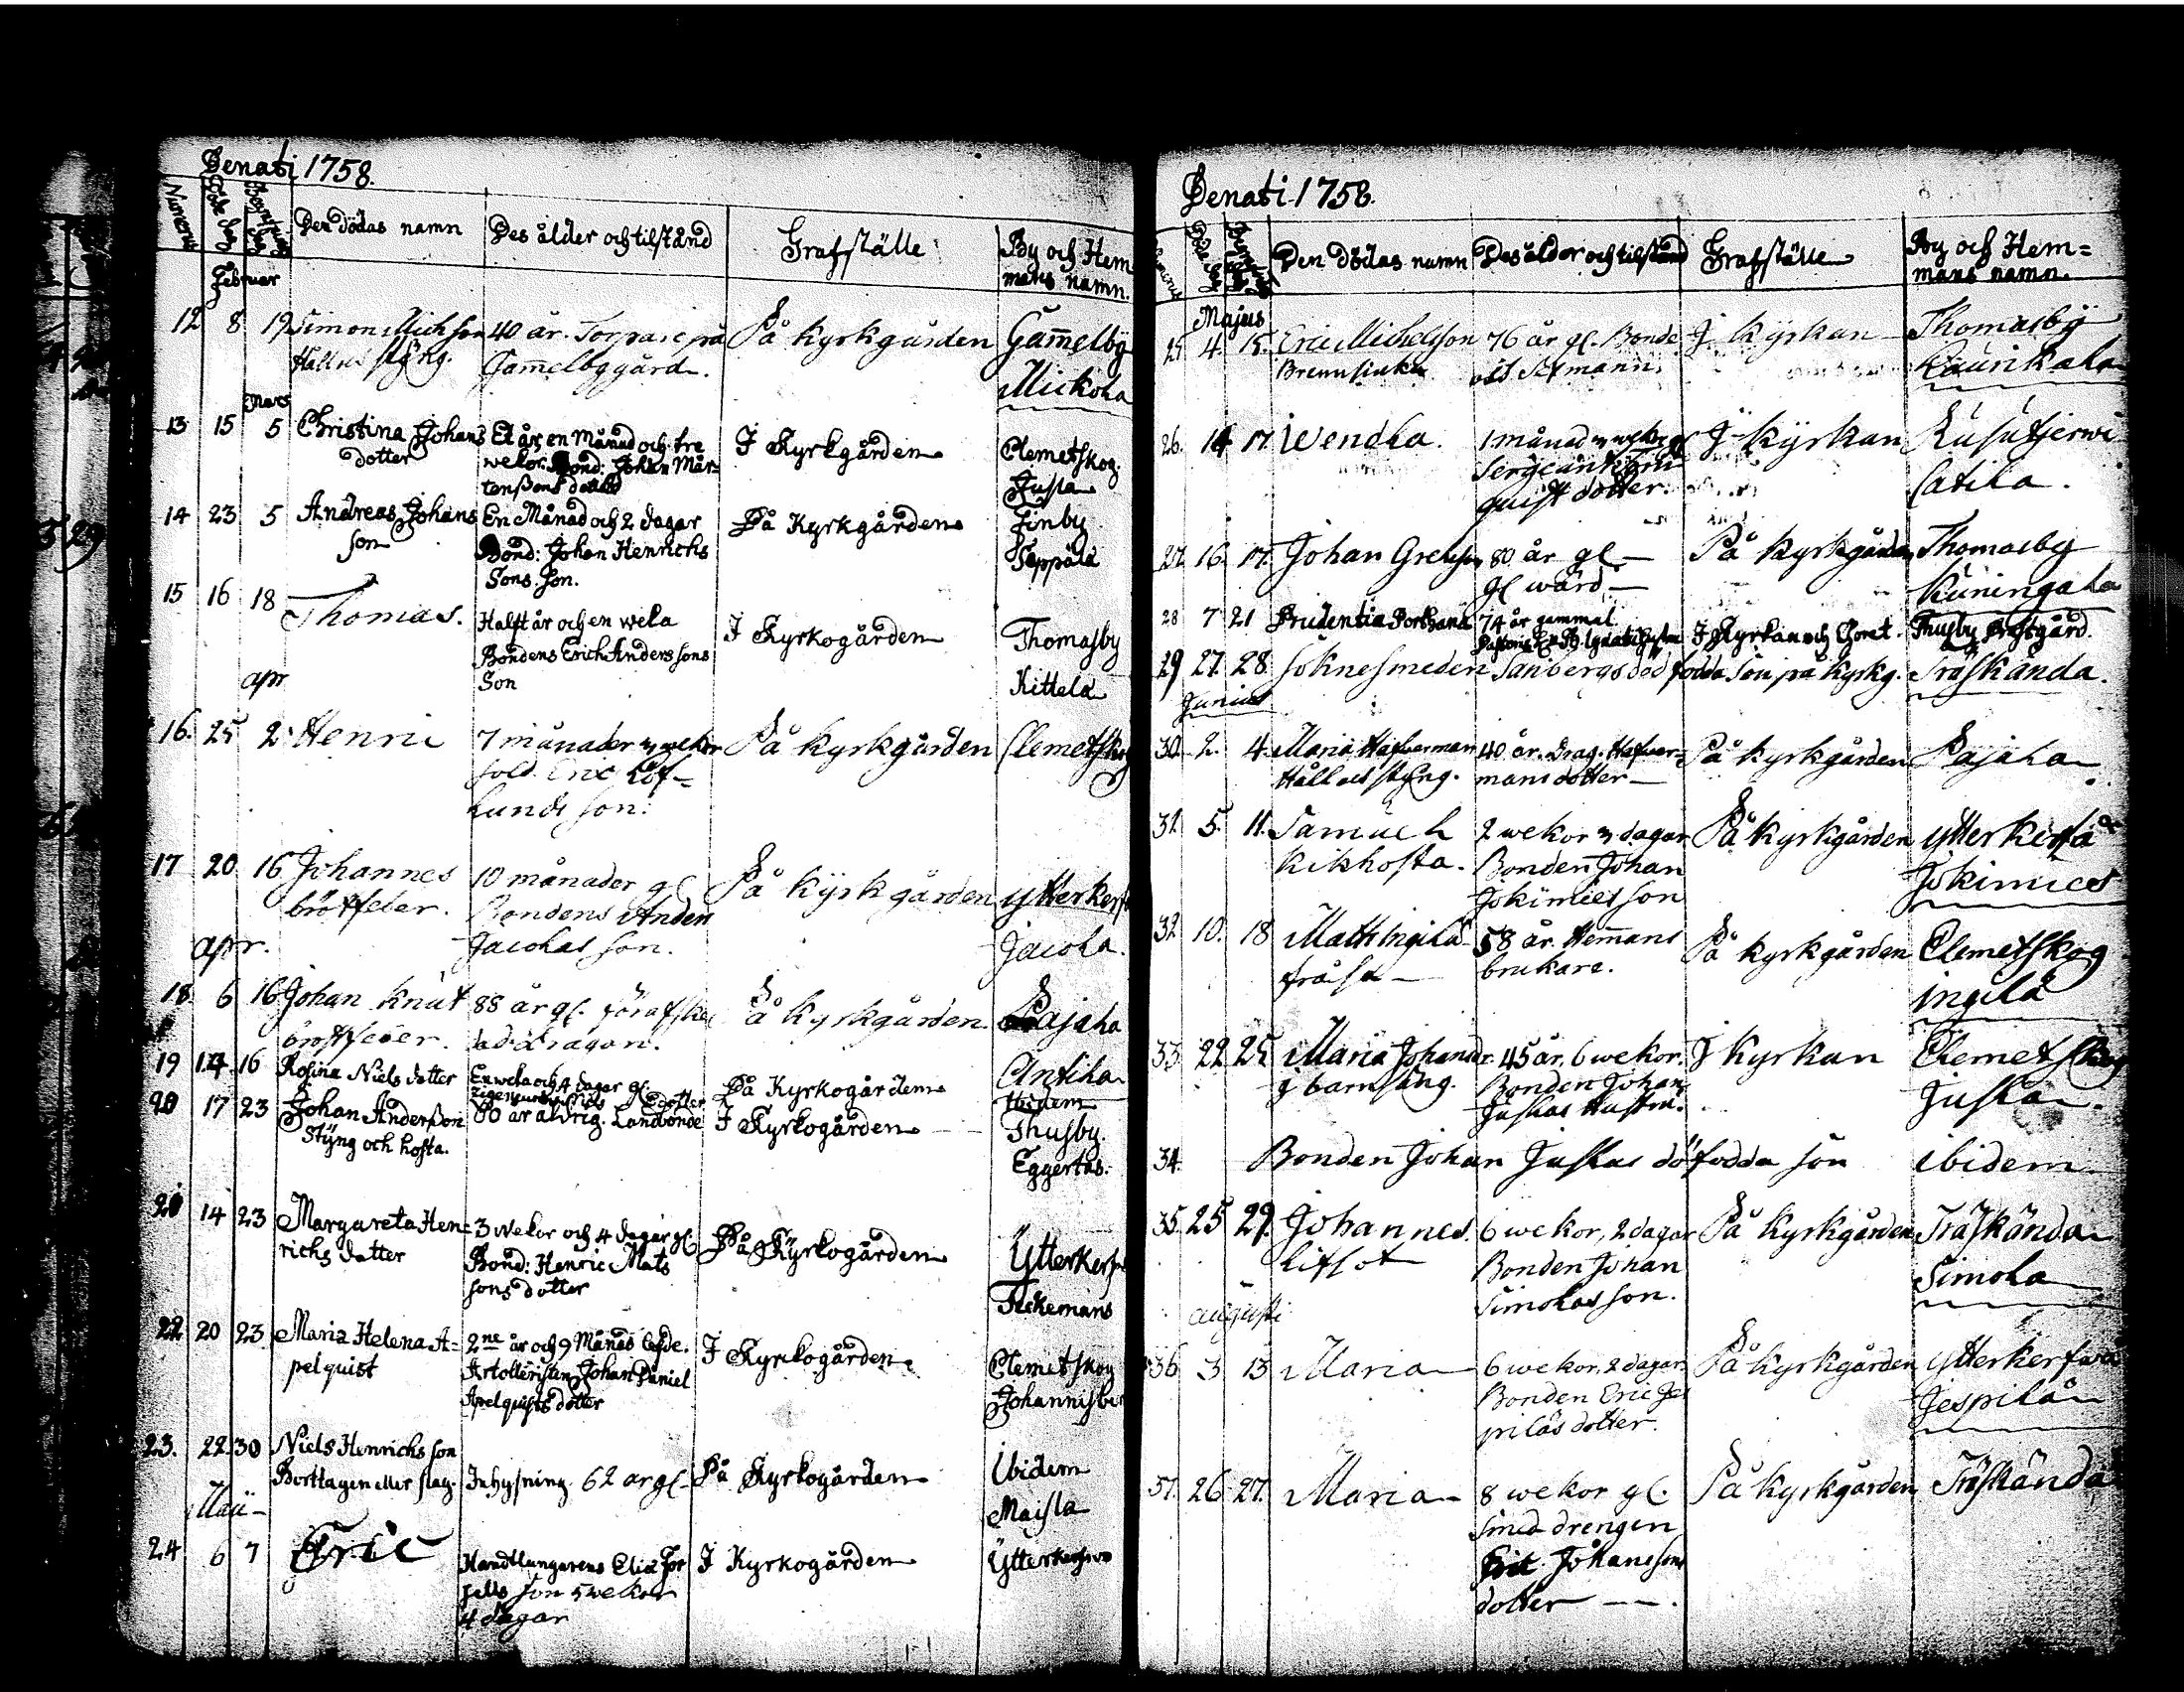 Denati 1758.
Numerus Döde dag Begrafnings dag Den dödas namn Des ålder och tilstånd Grafställe By och Hem
mans namn.
Februar
12 8 19 Simon Mich son 40 år. Torpare på På kyrkgården Gam̄elby
Håll och styng. Gam̄elbygård. Mickola
Mars
13 15 5 Christina Johans Et år, en Månad och tre I Kyrkgården Clemetskog.
dotter wekor. Bond: Johan Mår= Jussa
tenßons dotter
14 23 5 Andreas Johans En Månad och 2 dagar På Kyrkgården Finby
son Bond: Johan Henrichs Seppälä
Sons. Son.
15 16 18 Thomas. Halft år och en weka I Kyrkogården Thomasby
Bondens Erich Anders sons Kittela
Son
apr
16. 25 2. Henric 7 månader 3 wekor På kyrkgården Clemetskog
sold. Eric Löf=
lunds son.
17 20 16 Johannes 10 månader gl På kyrkgården ytterkerf
bröstfeber. Bondens Anders Jacola.
Jacolas son.
apr.
18 6 16 Johan Knut 88 år gl. förafske På kyrkgården. Pajala
bröstfeber. dad dragon.
19 14 16 Rosina Niels dotter En weka och 4 dagar gl. På Kyrkogården Antila
dotter Ibidem
20 17 23 Johan Anderßon 80 år åldrig. Landbonde I Kyrkogården Thusby.
Styng och hosta. Eggertas.
21 14 23 Margareta Hen= 3 wekor och 4 dagar gl På Kyrkogården Ytterkers
richs dotter Bond: Henric Mats Fickemans
sons dotter
22 20 23 Maria Helena A= 2ne år och 9 Månad. I Kyrkogården. Clemetskog
pelquist Artolleristen Johan Daniel Johannisber
Apelquists dotter
23. 22. 30 Niels Henrichs son Inhysning. 62 år gl. På Kyrkogården Ibidem
Borttagen eller slag. Maisla
Maii
24 6 7 Eric Handtlangarens Elia For I Kyrkogården Ytterkersvo
sells son 5 wekor
4 dagar
Denati 1758.
Numerus Döde dag Begrafnings dag Den dödas namn Des ålder och tilstånd Grafställe By och Hem=
mans namn.
Majus
25. 4. 15. Eric Michelsson 76 år gl. Bonde I kyrkan Thomasby
Brännsiuka och Sexmann. Kaurikala
26. 14 17. Wendla. 1 månad 3 wekor gl I kyrkan Rusutjerwi
Sergeanten
quist dotter. Catila.
27. 16. 17. Johan Grelsson 80 år gl På kyrkgården Thomasby
gl wärd Kuningala
28 7 21 Prudentia Porthana 74 år gammal I Kyrkan och Choret. Thusby Prästgård.
29 27. 28. Soknesmeden Sanbergs död födda son på kyrkg. Träskända.
Junius
30. 2. 4. Maria Hafwerman 40 år. Drag. Hafwer= På kyrkgården Pajala
Håll och styng. mans dotter
31. 5. 11. Samuel 2 wekor 3 dagar På kyrkgården ytterkerfva
kikhosta. Bonden Johan Jokimies
Jokimies son
32. 10. 18 Matts Ingilä 58 år. Hem̄ans På kyrkgården Clemetskog
fråssa brukare. Ingilä
33. 22 25. Maria Johansdr. 45 år. 6 wekor. I kyrkan Clemetskog
I barnsäng. Bonden Johan Jussas Hustru. Jussas.
34. Bonden Johan Jussas döfödda son ibidem
35. 25 29. Johannes. 6 wekor, 2 dagar På kyrkgården Träskända
Lifsot Bonden Johan Simola
Simolas son.
augusti
36 3 13 Maria 6 wekor, 2 dagar. På kyrkgården ytterkerfwa
Bonden Eric Jes Jespilä
piläs dotter.
37. 26 27. Maria 8 wekor gl. På kyrkgården Träskända
smed drengen
Eric Johanssons
dotter